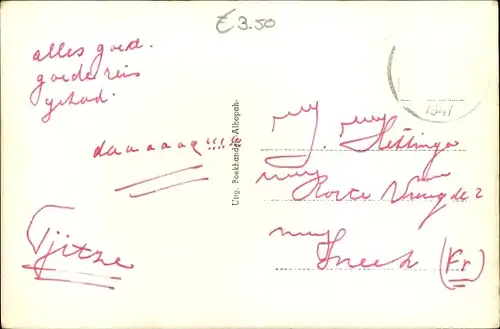 €3.50
alles goed.
goede reis
gehad.
daaaaag!!!!!
Tjitze
Uitg. Boekhandel Albopab.
J. Hettinga
Korte 2
Sneek (Fr)
1947